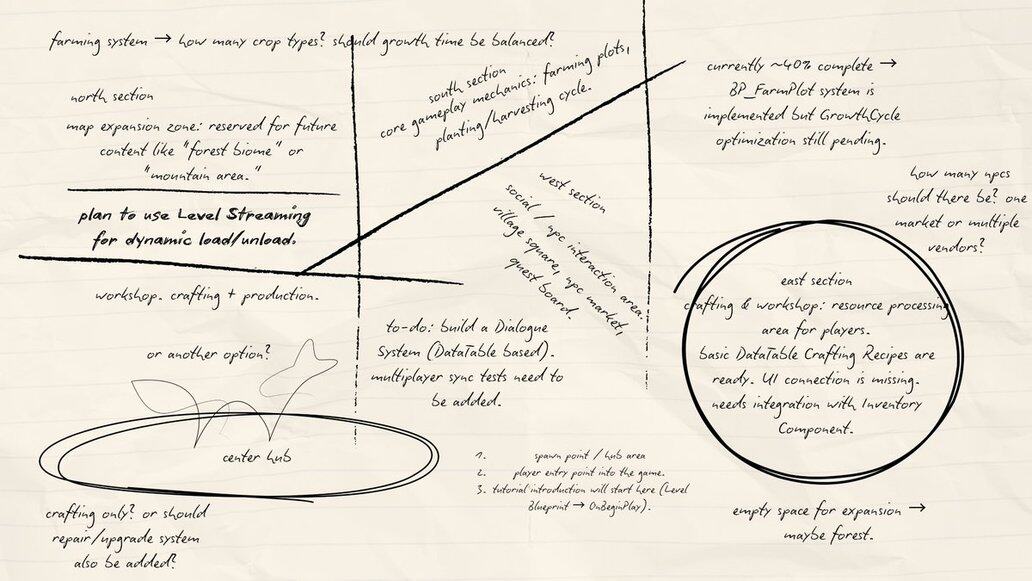 farming system → how many crop types? should growth time be balanced?
north section
map expansion zone: reserved for future
content like "forest biome" or
"mountain area."
plan to use Level Streaming
for dynamic load/unload.
south section
core gameplay mechanics: farming plots,
planting/harvesting cycle.
currently ~40% complete →
BP_FarmPlot system is
implemented but GrowthCycle
optimization still pending.
how many npcs
should there be? one
market or multiple
vendors?
west section
social / npc interaction area.
village square, npc market,
quest board.
workshop. crafting + production.
or another option?
to-do: build a Dialogue
System (DataTable based).
multiplayer sync tests need to
be added.
east section
crafting & workshop: resource processing
area for players.
basic DataTable Crafting Recipes are
ready. UI connection is missing.
needs integration with Inventory
Component.
center hub
1. spawn point / hub area
2. player entry point into the game.
3. tutorial introduction will start here (Level
Blueprint → OnBeginPlay).
crafting only? or should
repair/upgrade system
also be added?
empty space for expansion →
maybe forest.